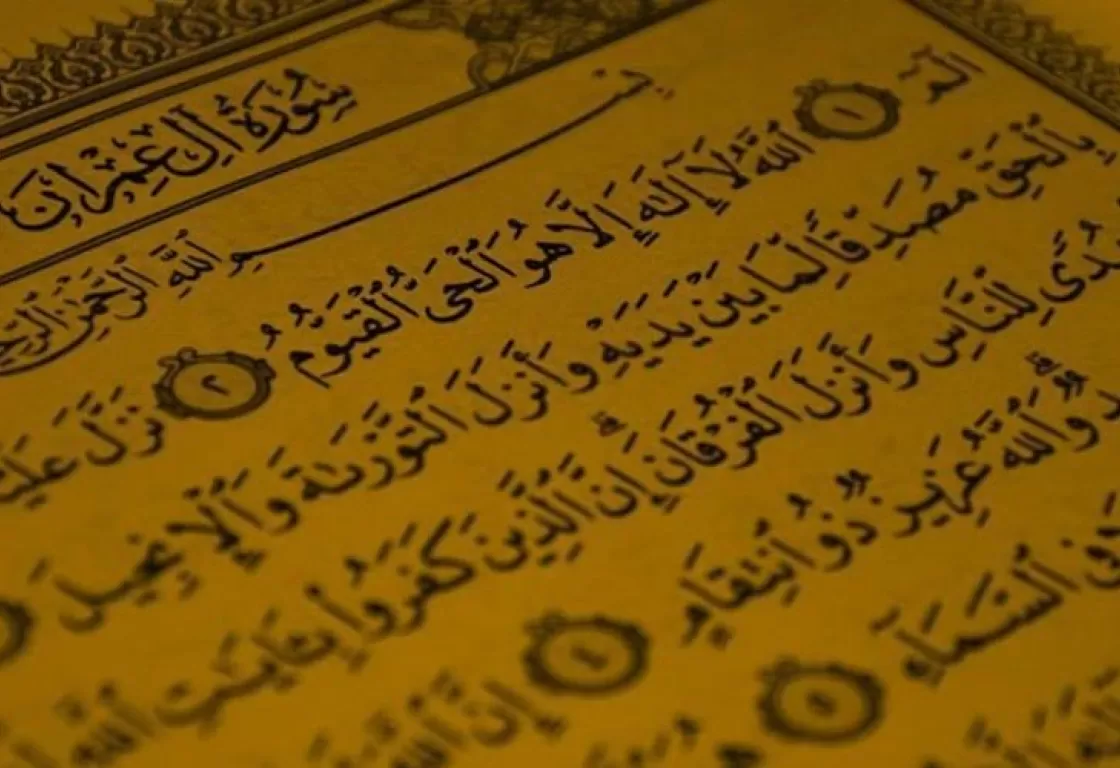 سُورَةُ آلِ عِمْرَان
بِسْمِ ٱللَّهِ ٱلرَّحْمَٰنِ ٱلرَّحِ
الٓمٓ ١ ٱللَّهُ لَآ إِلَٰهَ إِلَّا هُوَ ٱلْحَىُّ ٱلْقَيُّومُ ٢ نَزَّلَ عَلَيْ
بِٱلْحَقِّ مُصَدِّقًا لِّمَا بَيْنَ يَدَيْهِ وَأَنزَلَ ٱلتَّوْرَىٰةَ وَٱلْإِنجِيلَ
هُدًى لِّلنَّاسِ وَأَنزَلَ ٱلْفُرْقَانَ ۗ إِنَّ ٱلَّذِينَ كَفَرُوا۟ بِـَٔايَـٰتِ ٱللَّهِ
دٌ ۗ وَٱللَّهُ عَزِيزٌ ذُو ٱنتِقَامٍ ٤ إِنَّ ٱللَّهَ
ٱلسَّمَآءِ ٥ هُوَ